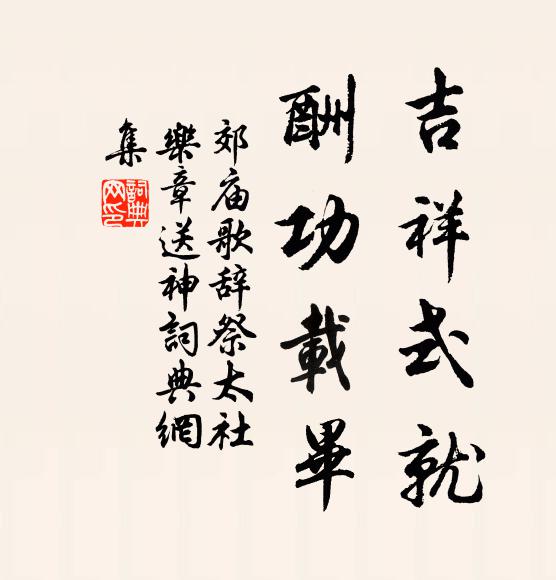 吉祥式就
酬功載畢
郊庙歌辞祭太社
樂章送神詞典網
集
詞典网印